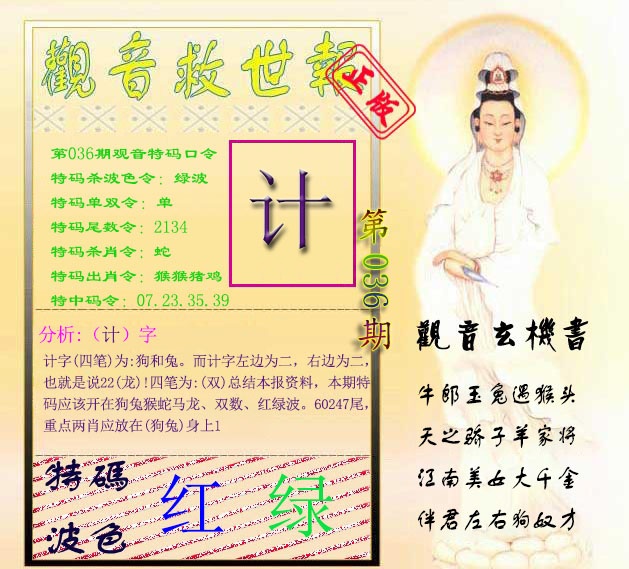 觀音救世報
正版
第036期观音特码口令
特码杀波色令: 绿波
特码单双令: 单
特码尾数令: 2134
特码杀肖令: 蛇
特码出肖令: 猴猴猪鸡
特中码令: 07.23.35.39
计
第036期
分析:（计）字
计字(四笔)为:狗和兔。而计字左边为二，右边为二，
也就是说22(龙)!四笔为:(双)总结本报资料，本期特
码应该开在狗兔猴蛇马龙、双数、红绿波。60247尾，
重点两肖应放在(狗兔)身上1
特碼
波色
红 绿
觀音玄機書
牛郎玉兔遇猴头
天之骄子羊家将
江南美女大千金
伴君左右狗奴才